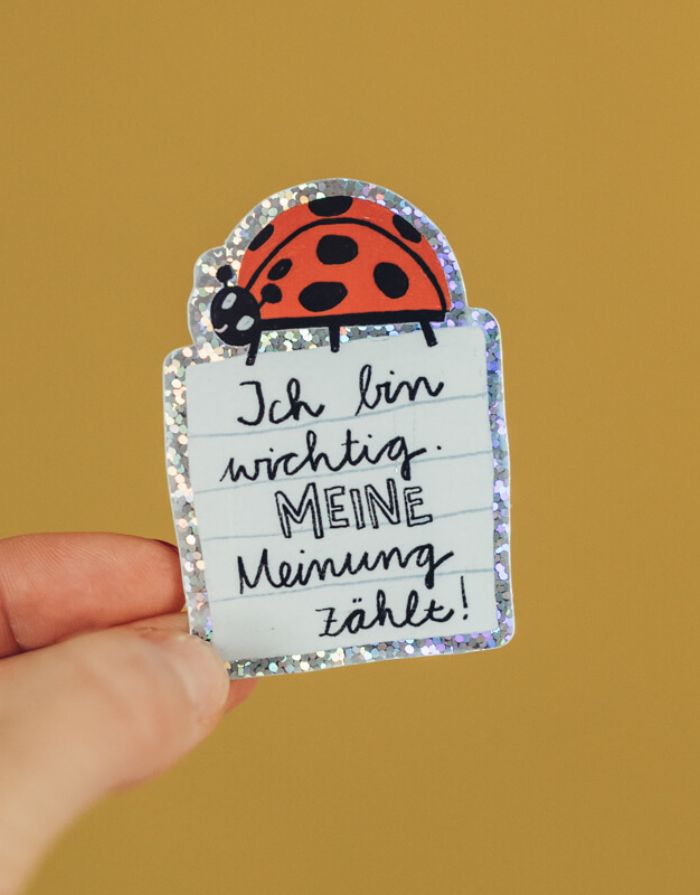 Ich bin
wichtig.
MEINE
Meinung
zählt!